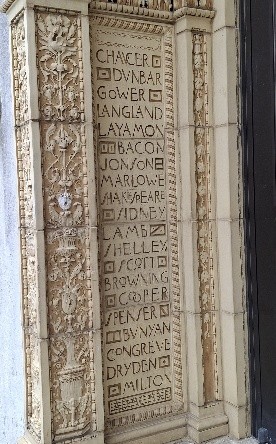 CHAUCER
DVNBAR
GOWER
LANGLAND
LAYAMON
BACON
JONSON
MARLOWE
SHAKESPEARE
SIDNEY
LAMB
SHELLEY
SCOTT
BROWNING
COOPER
SPENSER
BVNYAN
CONGREVE
DRYDEN
MILTON